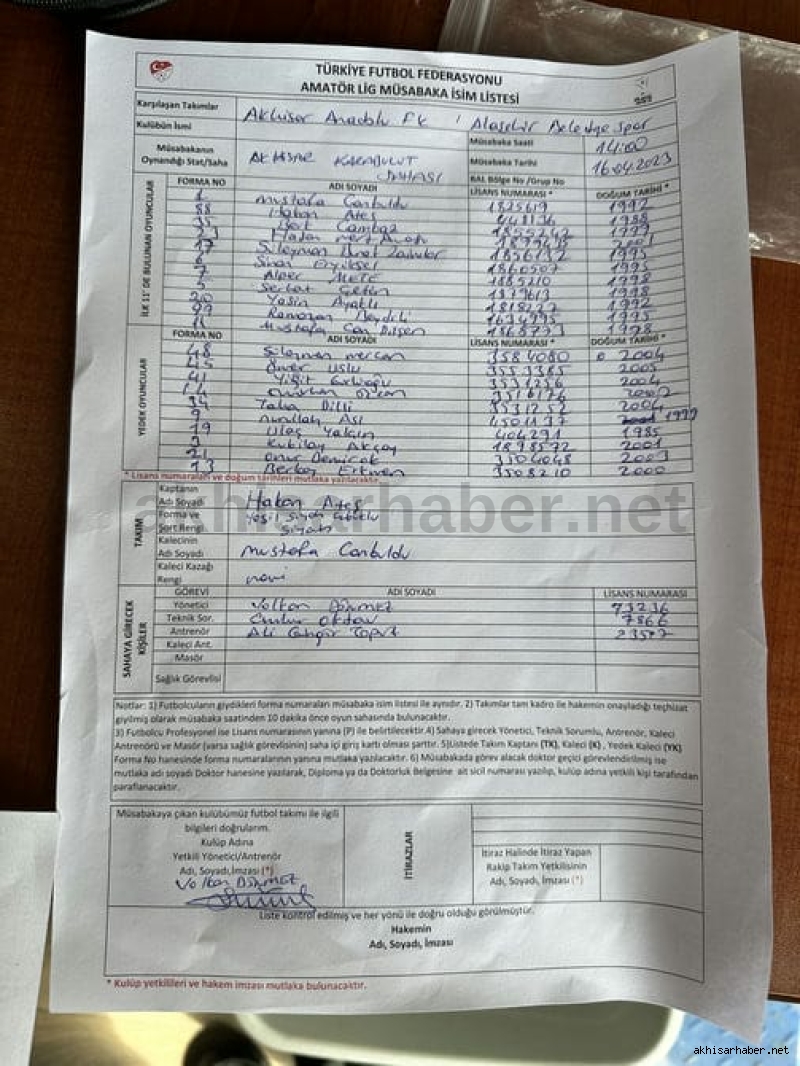 TÜRKİYE FUTBOL FEDERASYONU
AMATÖR LİG MÜSABAKA İSİM LİSTESİ
Karşılaşan Takımlar
Kulübün İsmi
Akhisar Anadolu FK / Alaşehir Belediye Spor
Müsabakanın
Oynandığı Stat/Saha
AKHİSAR KARABULUT
SAHASI
Müsabaka Saati 14:00
Müsabaka Tarihi 16.04.2023
BAL Bölge No /Grup No
İLK 11' DE BULUNAN OYUNCULAR
FORMA NO ADI SOYADI LİSANS NUMARASI * DOĞUM TARİHİ *
1 Mustafa Canbuldu 1825619 1992
88 Hakan Ateş 1988
35 Mert Cambaz 1855242
Hakan Mert
17 Süleyman 1856132 1995
6 Sinan 1860507 1995
7 Alper METE 1885210 1998
5 Serhat Çetin 1979613 1998
20 Yasin Ayaklı 1992
99 Ramazan 1634995 1995
11 Mustafa Can 1868773 1998
YEDEK OYUNCULAR
FORMA NO ADI SOYADI LİSANS NUMARASI * DOĞUM TARİHİ *
48 Süleyman Mercan 3584080 2004
45 Ömer Uslu 3553385 2005
41 Yiğit 3531256 2004
3516176
34 Taha Dilli 3531252 2004
9 1999
19 Ulaş Yalçın 404291 1985
3 Kubilay Akçay 1898572 2001
21 Onur 3504048 2003
13 Berkay Ertmen 3508210 2000
* Lisans numaraları ve doğum tarihleri mutlaka yazılacaktır.
TAKIM
Kaptanın
Adı Soyadı
Hakan Ateş
Forma ve
Şort Rengi
Yeşil Siyah Çubuklu
Siyah
Kalecinin
Adı Soyadı
Mustafa Canbuldu
Kaleci Kazağı
Rengi
mavi
akhisarhaber.net
SAHAYA GİRECEK KİŞİLER
GÖREVİ ADI SOYADI LİSANS NUMARASI
Yönetici Volkan Dönmez 73236
Teknik Sor. Oktav 7866
Antrenör Ali Cengiz
Kaleci Ant.
Masör
Sağlık Görevlisi
Notlar: 1) Futbolcuların giydikleri forma numaraları müsabaka isim listesi ile aynıdır. 2) Takımlar tam kadro ile hakemin onayladığı teçhizat
giyilmiş olarak müsabaka saatinden 10 dakika önce oyun sahasında bulunacaktır.
3) Futbolcu Profesyonel ise Lisans numarasının yanına (P) ile belirtilecektir.4) Sahaya girecek Yönetici, Teknik Sorumlu, Antrenör, Kaleci
Antrenörü ve Masör (varsa sağlık görevlisinin) saha içi giriş kartı olması şarttır. 5)Listede Takım Kaptanı (TK), Kaleci (K) , Yedek Kaleci (YK)
Forma No hanesinde forma numaralarının yanına mutlaka yazılacaktır. 6) Müsabakada görev alacak doktor geçici görevlendirilmiş ise
mutlaka adı soyadı Doktor hanesine yazılarak, Diploma ya da Doktorluk Belgesine ait sicil numarası yazılıp, kulüp adına yetkili kişi tarafından
paraflanacaktır.
Müsabakaya çıkan kulübümüz futbol takımı ile ilgili
bilgileri doğrularım.
Kulüp Adına
Yetkili Yönetici/Antrenör
Adı, Soyadı,İmzası (*)
Volkan DÖNMEZ
İTİRAZLAR
İtiraz Halinde İtiraz Yapan
Rakip Takım Yetkilisinin
Adı, Soyadı, İmzası (*)
Liste kontrol edilmiş ve her yönü ile doğru olduğu görülmüştür.
Hakemin
Adı, Soyadı, İmzası
* Kulüp yetkilileri ve hakem imzası mutlaka bulunacaktır.
akhisarhaber.net